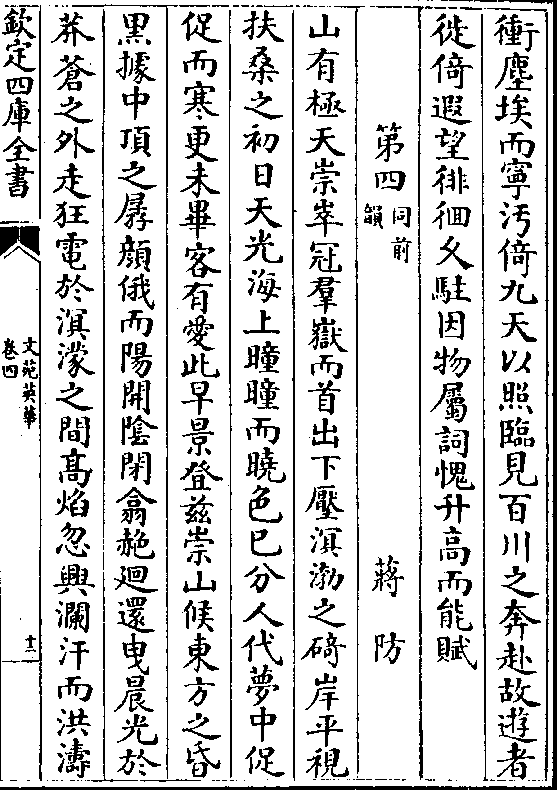 衝塵埃而寧汚倚九天以照臨見百川之奔赴故遊者
徙倚遐望徘徊久駐因物屬詞愧升高而能賦
第四同前韻　蔣防
山有極天崇崒冠羣嶽而首出下壓溟渤之碕岸平視
扶桑之初日天光海上曈曈而曉色已分人代夢中促
促而寒更未畢客有愛此早景登兹崇山候東方之昏
黑據中頂之孱顔俄而陽開陰閉翕赩迴還曳晨光於
莽蒼之外走狂電於溟濛之間髙焰忽興瀾汗而洪濤
欽定四庫全書
文苑英華
卷四
十二